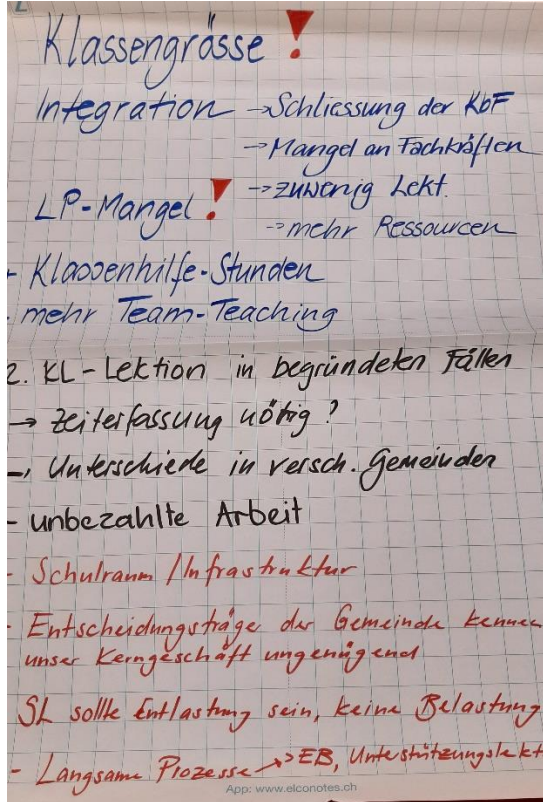 Klassengrösse !
Integration → Schliessung der KbF
→ Mangel an Fachkräften
LP-Mangel ! → zuwenig Lekt.
→ mehr Ressourcen
- Klassenhilfe-Stunden
- mehr Team-Teaching
2. KL-Lektion in begründeten Fällen
→ Zeiterfassung nötig ?
→ Unterschiede in versch. Gemeinden
- unbezahlte Arbeit
- Schulraum / Infrastruktur
- Entscheidungsträge der Gemeinde kennen
unser Kerngeschäft ungenügend
SL sollte Entlastung sein, keine Belastung
- Langsame Prozesse → EB, Unterstützungslekt
App: www.elconotes.ch